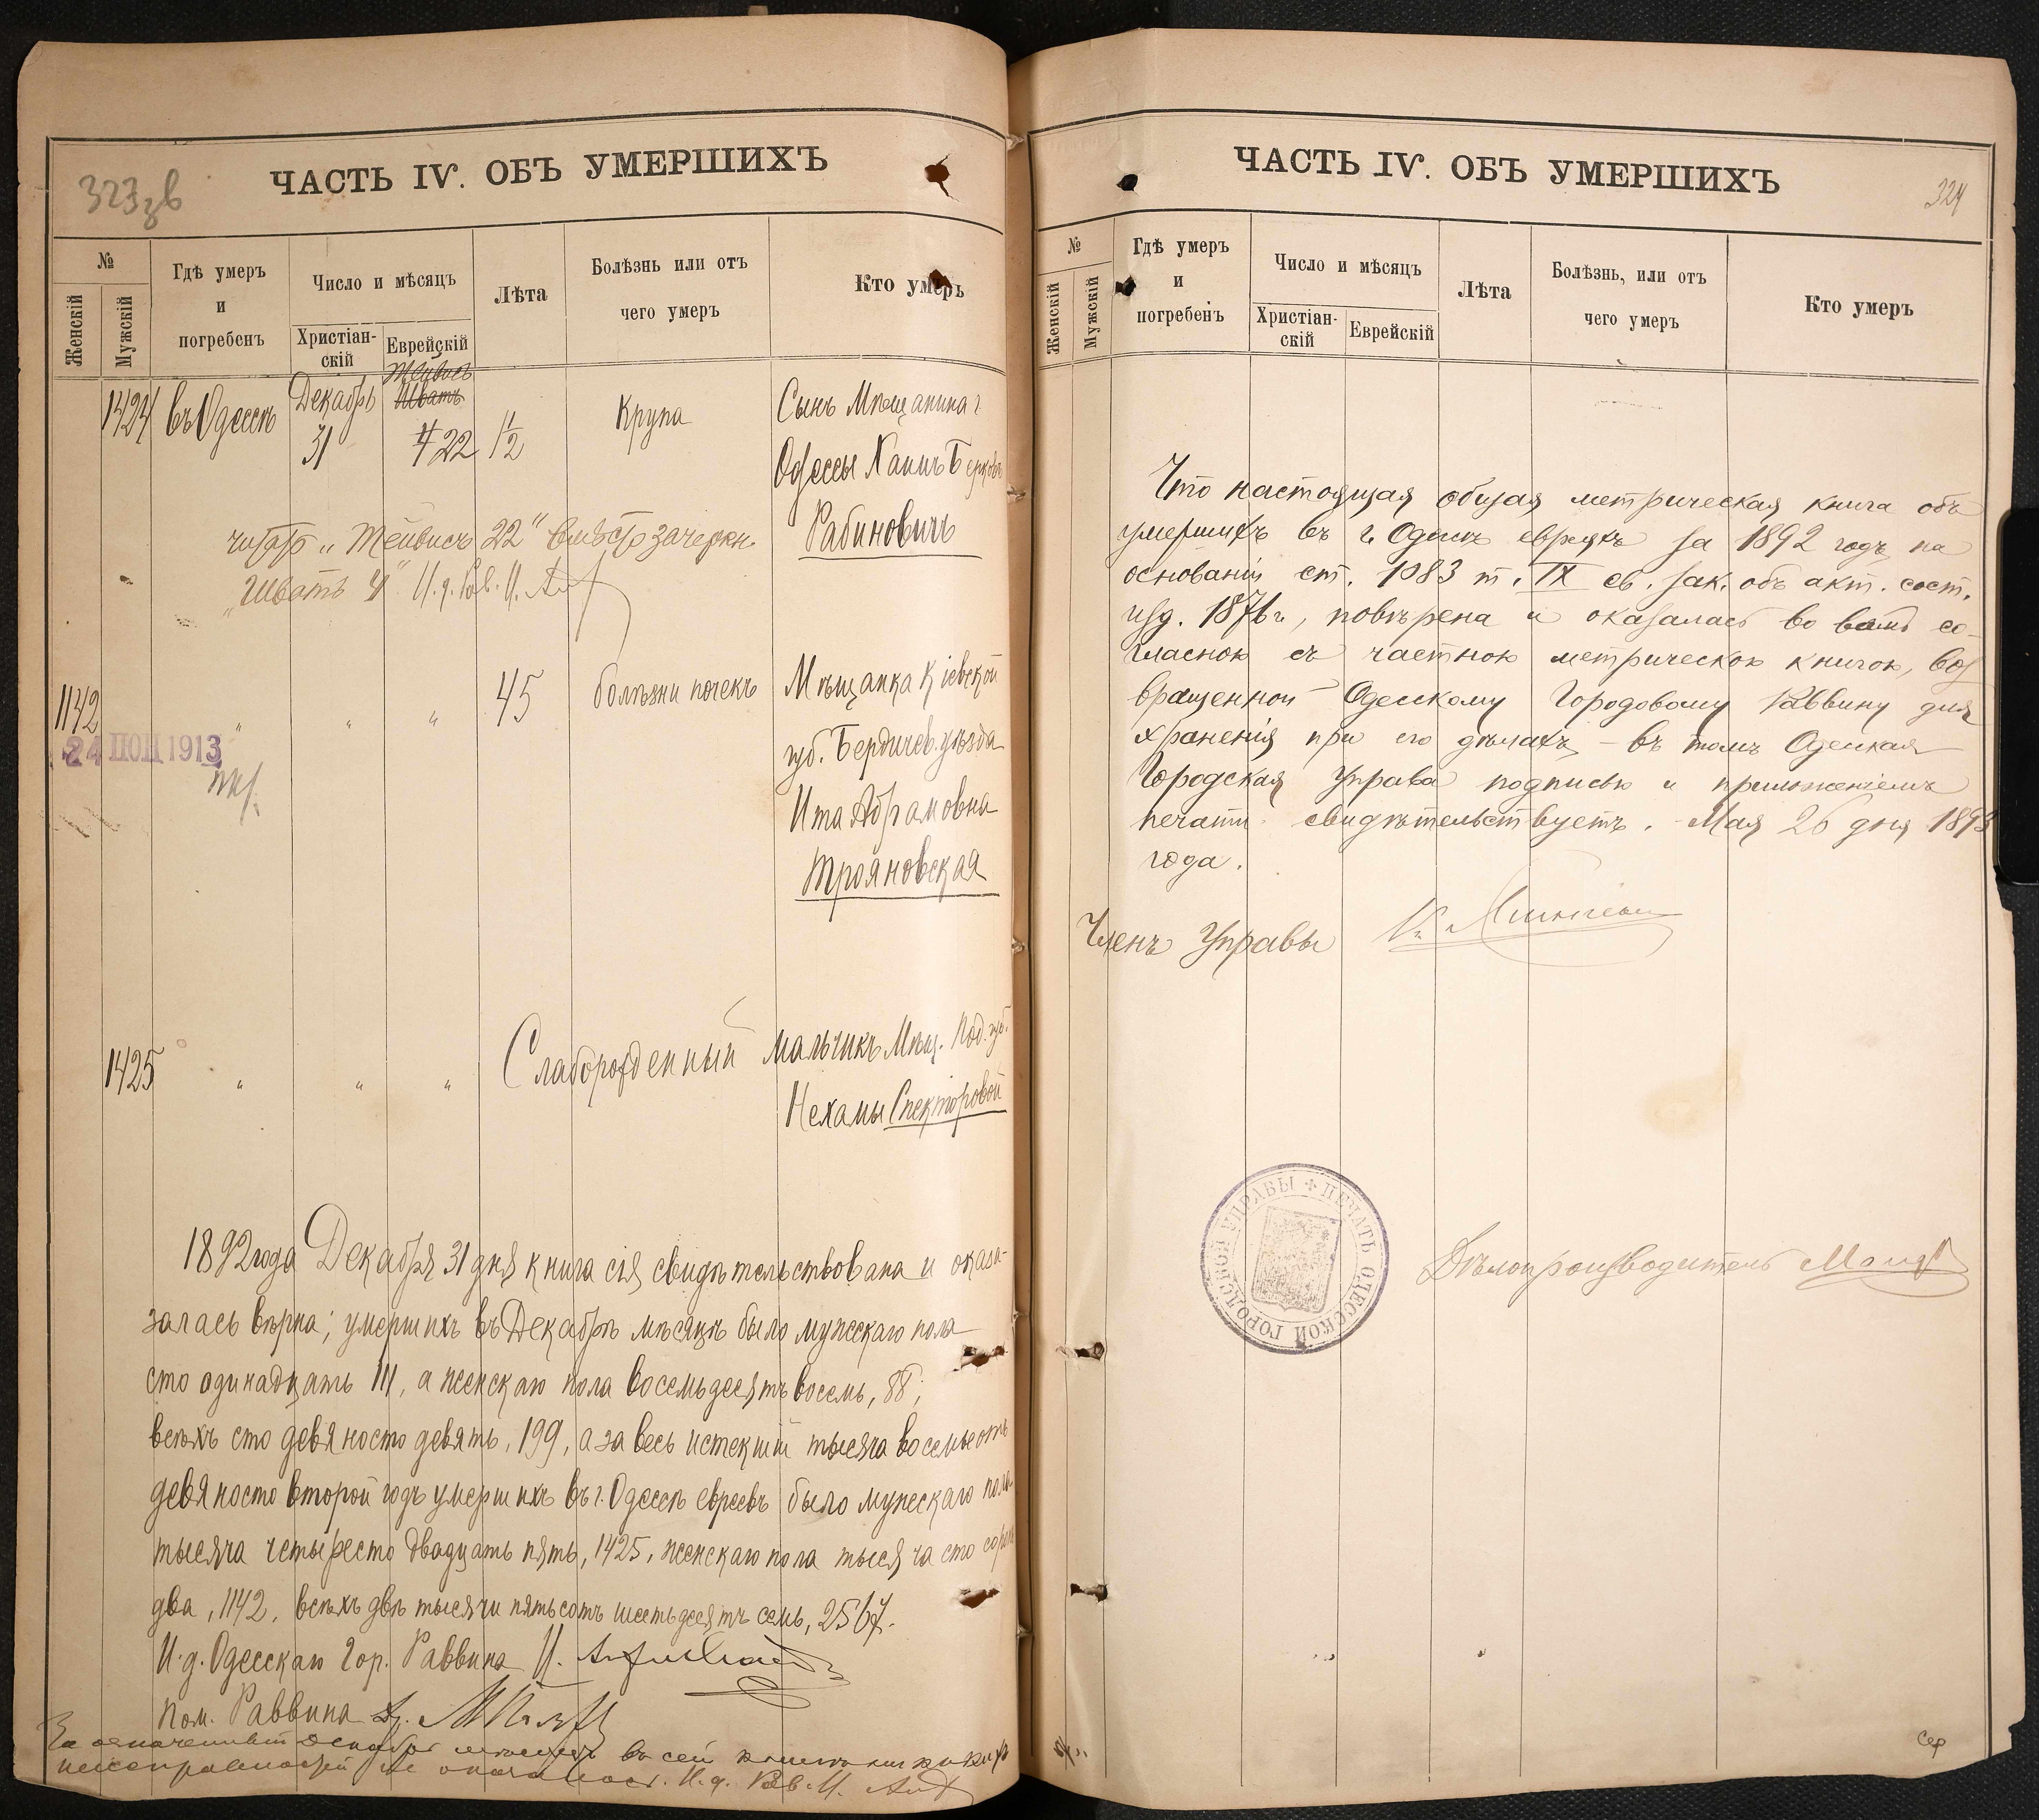 323 зв
ЧАСТЬ IV. ОБЪ УМЕРШИХЪ
№
Женскій
Мужскій
Гдѣ умеръ
и
погребенъ
Число и мѣсяцъ
Христіан-
скій
Еврейскій
Лѣта
Болѣзнь или отъ
чего умеръ
Кто умеръ
1424 въ Одессѣ Декабрь 31 Тейвисъ Шватъ 4 22 1½ Крупа
Сынъ Мѣщанина г.
Одессы Хаимъ Берковъ
Рабиновичъ
читать „Тейвисъ 22" вмѣсто зачеркн.
„Шватъ 4" И. д. Рав. И.
1142 „ „ „ 45 болѣзни почекъ Мѣщанка Кіевской
24 ІЮЛ 1913
губ. Бердичев. уѣзда
Ита Абрамовна
Трояновская
1425 „ „ „ Слаборожденный мальчикъ Мѣщ. Под. губ.
Нехамы Спекторовой
1892 года Декабря 31 дня книга сія свидѣтельствована и оказа-
залась вѣрна; умершихъ въ Декабрѣ мѣсяцѣ было мужескаго пола
сто одинадцать 111, а женскаго пола восемьдесятъ восемь, 88;
всѣхъ сто девяносто девять, 199, а за весь истекшій тысяча восемьсотъ
девяносто второй годъ умершихъ въ г. Одессѣ евреевъ было мужескаго пола
тысяча четыресто двадцать пять, 1425, женскаго пола тысяча сто сорокъ
два, 1142, всѣхъ двѣ тысячи пятьсотъ шестьдесятъ семь, 2567.
И. д. Одесскаго Гор. Раввина И.
Пом. Раввина Др.
За означенный Декабрь мѣсяцъ въ сей книгѣ никакихъ
неисправностей не оказалось. И. д. Рав. И.
ЧАСТЬ IV. ОБЪ УМЕРШИХЪ
324
№
Женскій
Мужскій
Гдѣ умеръ
и
погребенъ
Число и мѣсяцъ
Христіан-
скій
Еврейскій
Лѣта
Болѣзнь, или отъ
чего умеръ
Кто умеръ
Что настоящая общая метрическая книга объ
умершихъ въ г. Одессѣ евреяхъ за 1892 годъ, на
основаніи ст. 1083 т. IX св. зак. объ акт. сост.
изд. 1876 г., повѣрена и оказалась во всемъ со-
гласною съ частною метрическою книгою, воз
вращенной Одесскому Городовому Раввину для
храненія при его дѣлахъ, — въ томъ Одесская
Городская Управа подписью и приложеніемъ
печати свидѣтельствуетъ. Мая 26 дня 1893
года.
Членъ Управы
ПЕЧАТЬ ОДЕССКОЙ ГОРОДСКОЙ УПРАВЫ
Дѣлопроизводитель